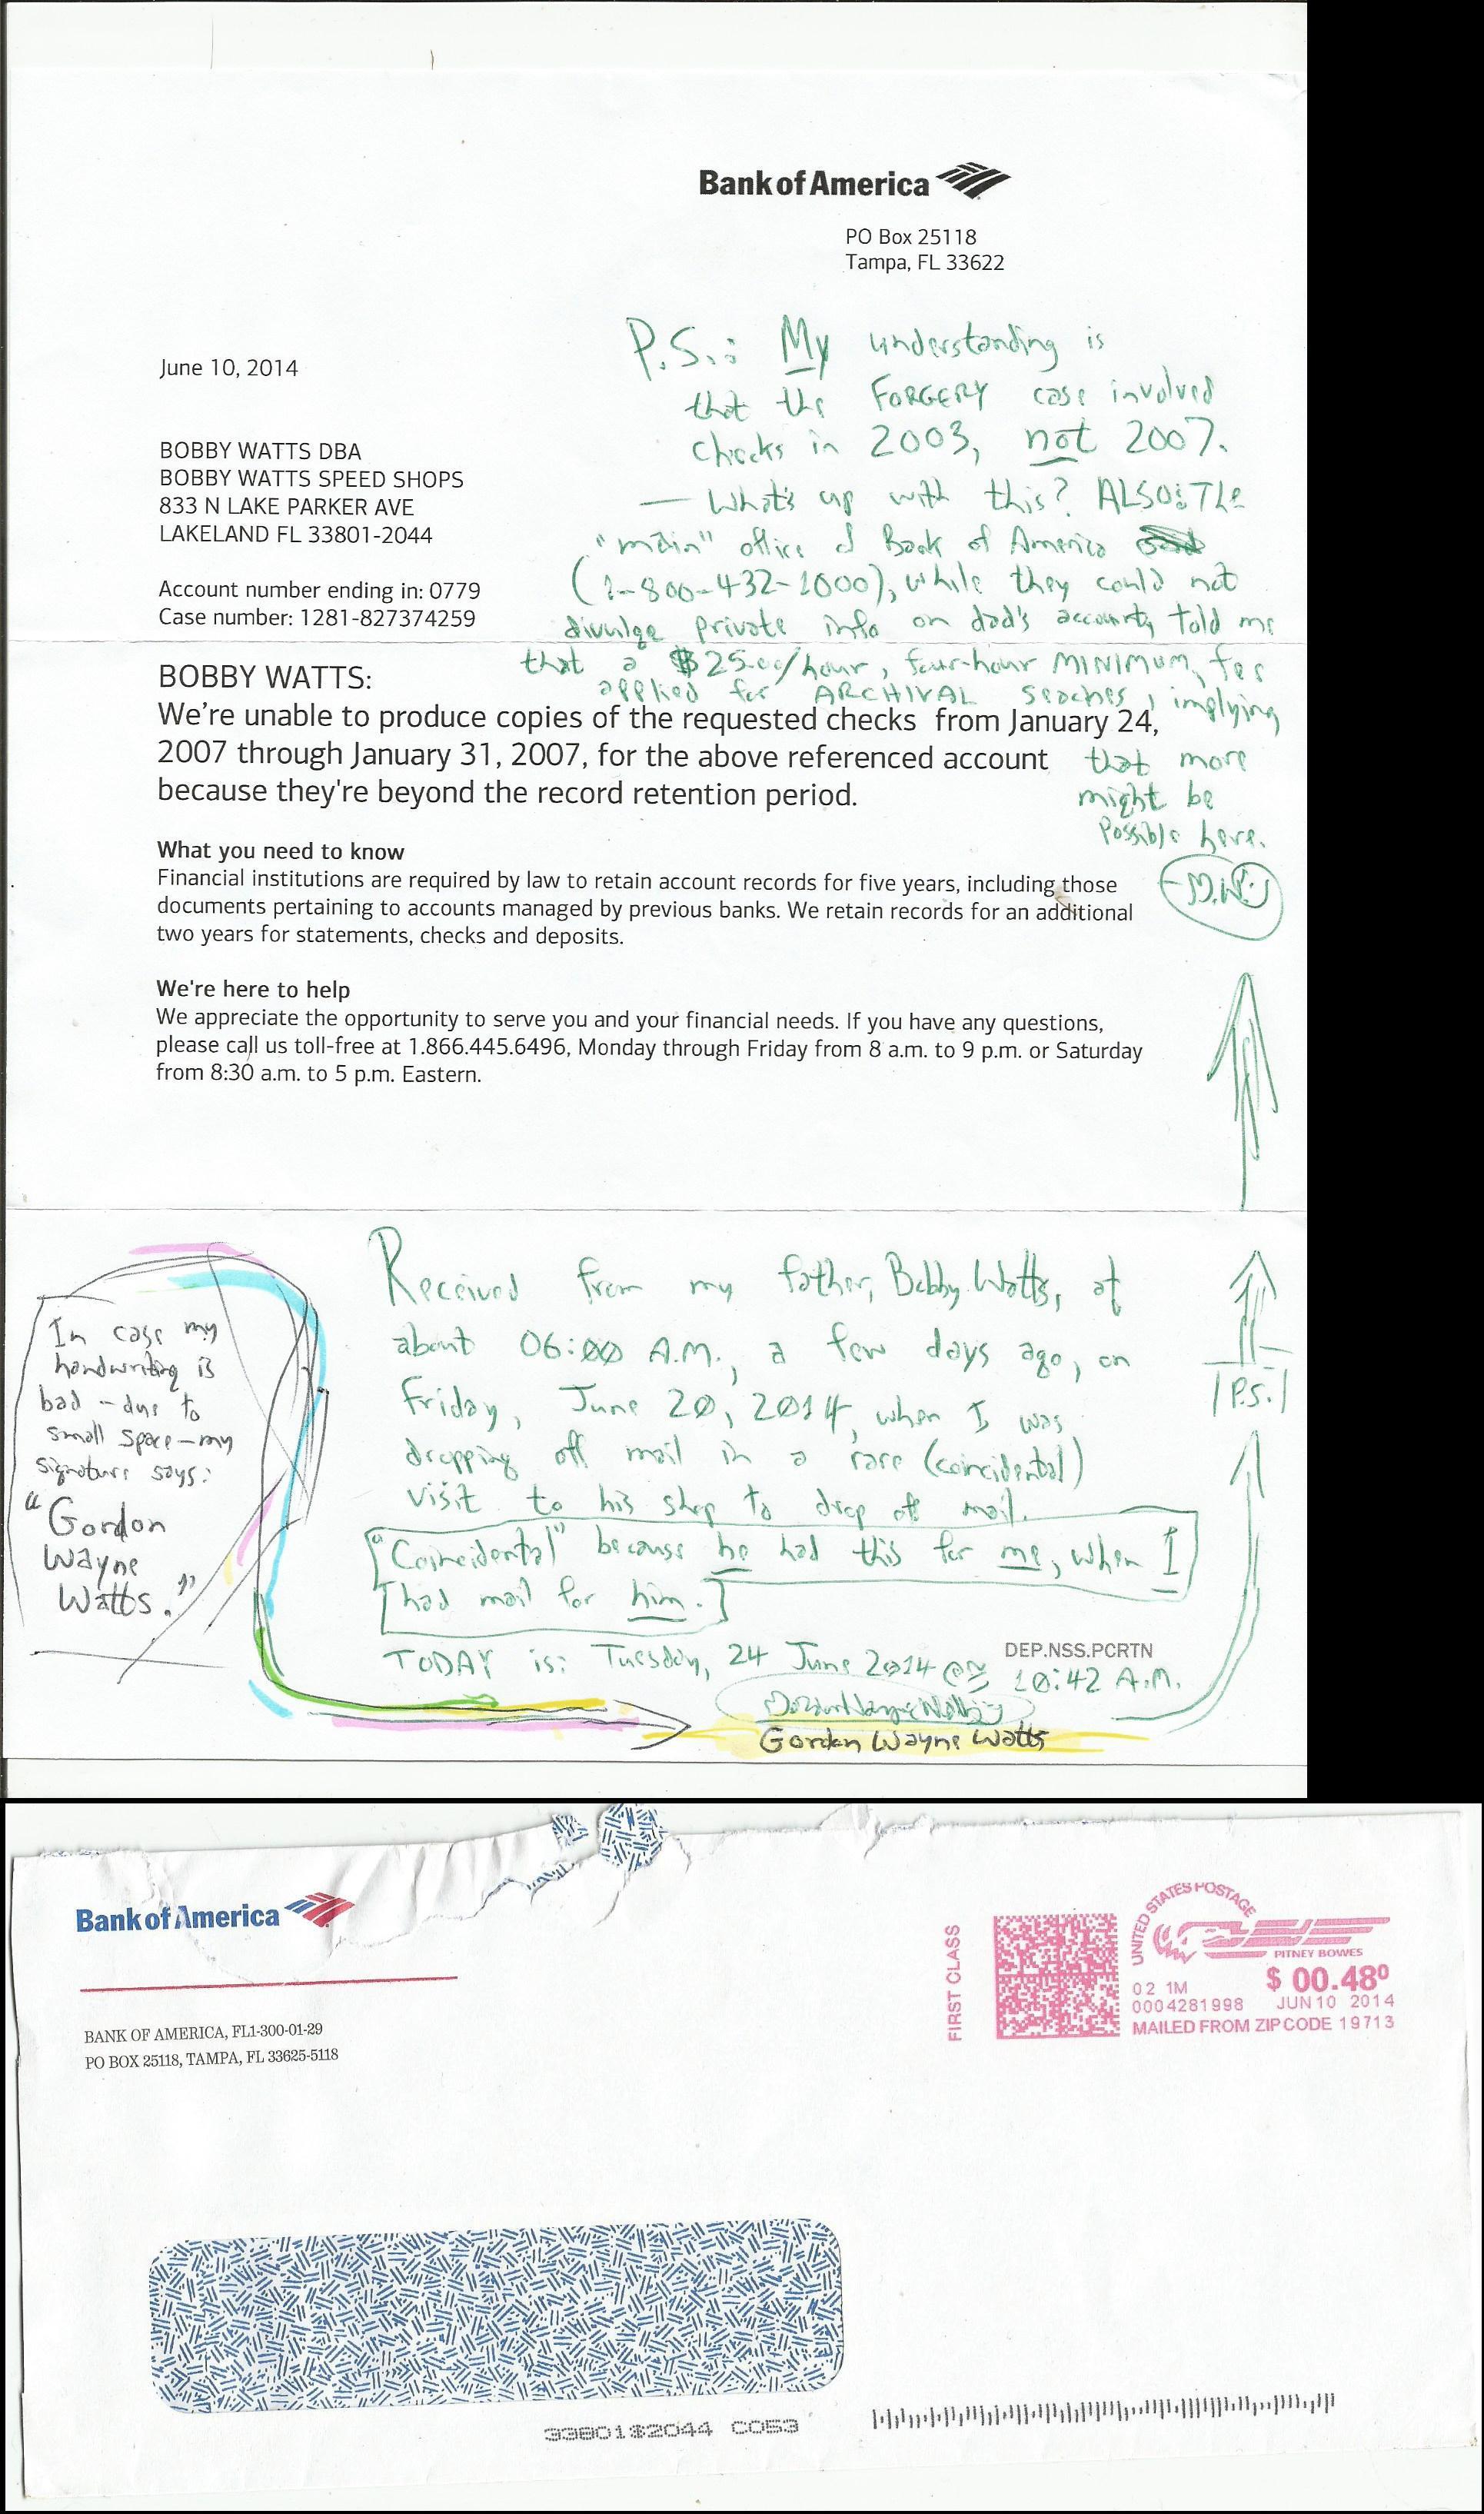 Bank of America
PO Box 25118
Tampa, FL 33622
June 10, 2014
BOBBY WATTS DBA
BOBBY WATTS SPEED SHOPS
833 N LAKE PARKER AVE
LAKELAND FL 33801-2044
Account number ending in: 0779
Case number: 1281-827374259
P.S.: My understanding is
that the FORGERY case involved
checks in 2003, not 2007.
— What's up with this? ALSO: The
"main" office of Bank of America
(1-800-432-1000), while they could not
divulge private info on dad's account, told me
that a $25.00/hour, four-hour MINIMUM, fee
applied for ARCHIVAL seaches, implying
that more
might be
possible here.
BOBBY WATTS:
We're unable to produce copies of the requested checks from January 24,
2007 through January 31, 2007, for the above referenced account
because they're beyond the record retention period.
What you need to know
Financial institutions are required by law to retain account records for five years, including those
documents pertaining to accounts managed by previous banks. We retain records for an additional
two years for statements, checks and deposits.
We're here to help
We appreciate the opportunity to serve you and your financial needs. If you have any questions,
please call us toll-free at 1.866.445.6496, Monday through Friday from 8 a.m. to 9 p.m. or Saturday
from 8:30 a.m. to 5 p.m. Eastern.
Received from my father, Bobby Watts, at
about 06:00 A.M., a few days ago, on
Friday, June 20, 2014, when I was
dropping off mail in a rare (coincidental)
visit to his shop to drop off mail.
["Coincidental" because he had this for me, when I
had mail for him.]
TODAY is: Tuesday, 24 June 2014 @ 10:42 A.M.
DEP.NSS.PCRTN
Gordon Wayne Watts
P.S.
In case my
handwriting is
bad – due to
small space – my
signature says:
"Gordon
Wayne
Watts."
Bank of America
BANK OF AMERICA, FL1-300-01-29
PO BOX 25118, TAMPA, FL 33625-5118
FIRST CLASS
UNITED STATES POSTAGE
PITNEY BOWES
02 1M
$ 00.48⁰
0004281998
JUN 10 2014
MAILED FROM ZIP CODE 19713
33801$2044 C053